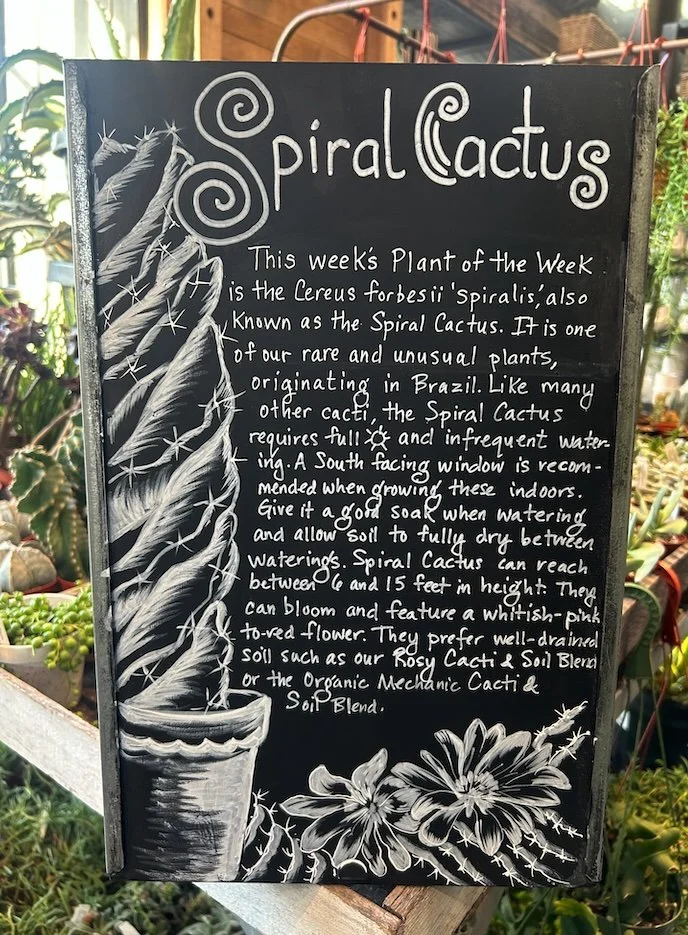 Spiral Cactus
This week's Plant of the Week
is the Cereus forbesii 'spiralis,' also
known as the Spiral Cactus. It is one
of our rare and unusual plants,
originating in Brazil. Like many
other cacti, the Spiral Cactus
requires full and infrequent water-
ing. A South facing window is recom-
mended when growing these indoors.
Give it a good soak when watering
and allow soil to fully dry between
waterings. Spiral Cactus can reach
between 6 and 15 feet in height. They
can bloom and feature a whitish-pink
to-red flower. They prefer well-drained
soil such as our Rosy Cacti & Soil Blend
or the Organic Mechanic Cacti &
Soil Blend.